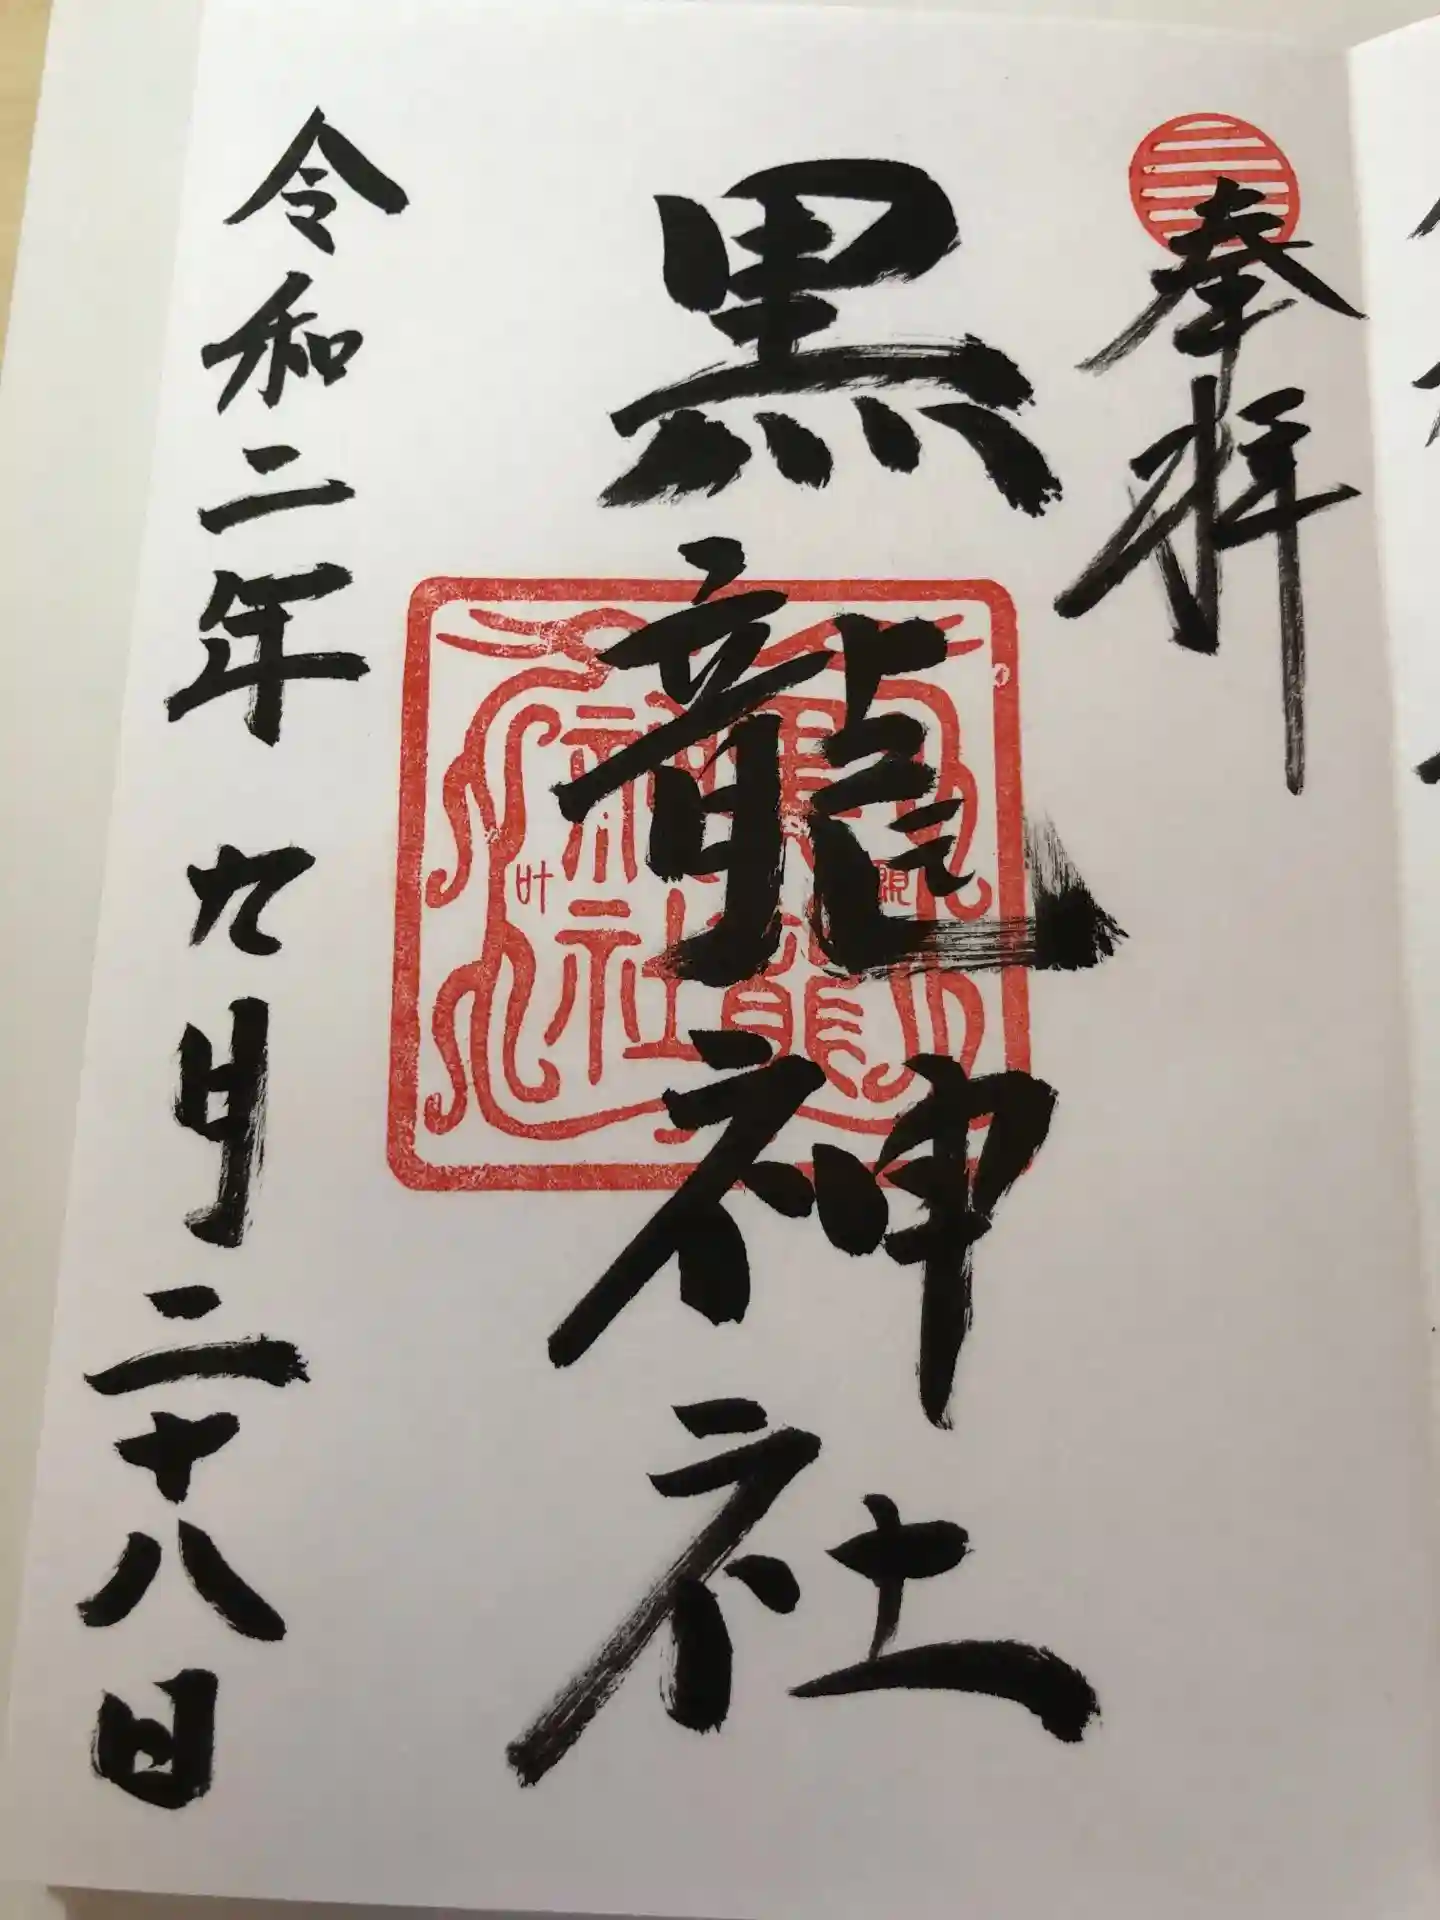 奉拝
黒龍神社
黒龍
神社
叶
令和二年 九月二十八日